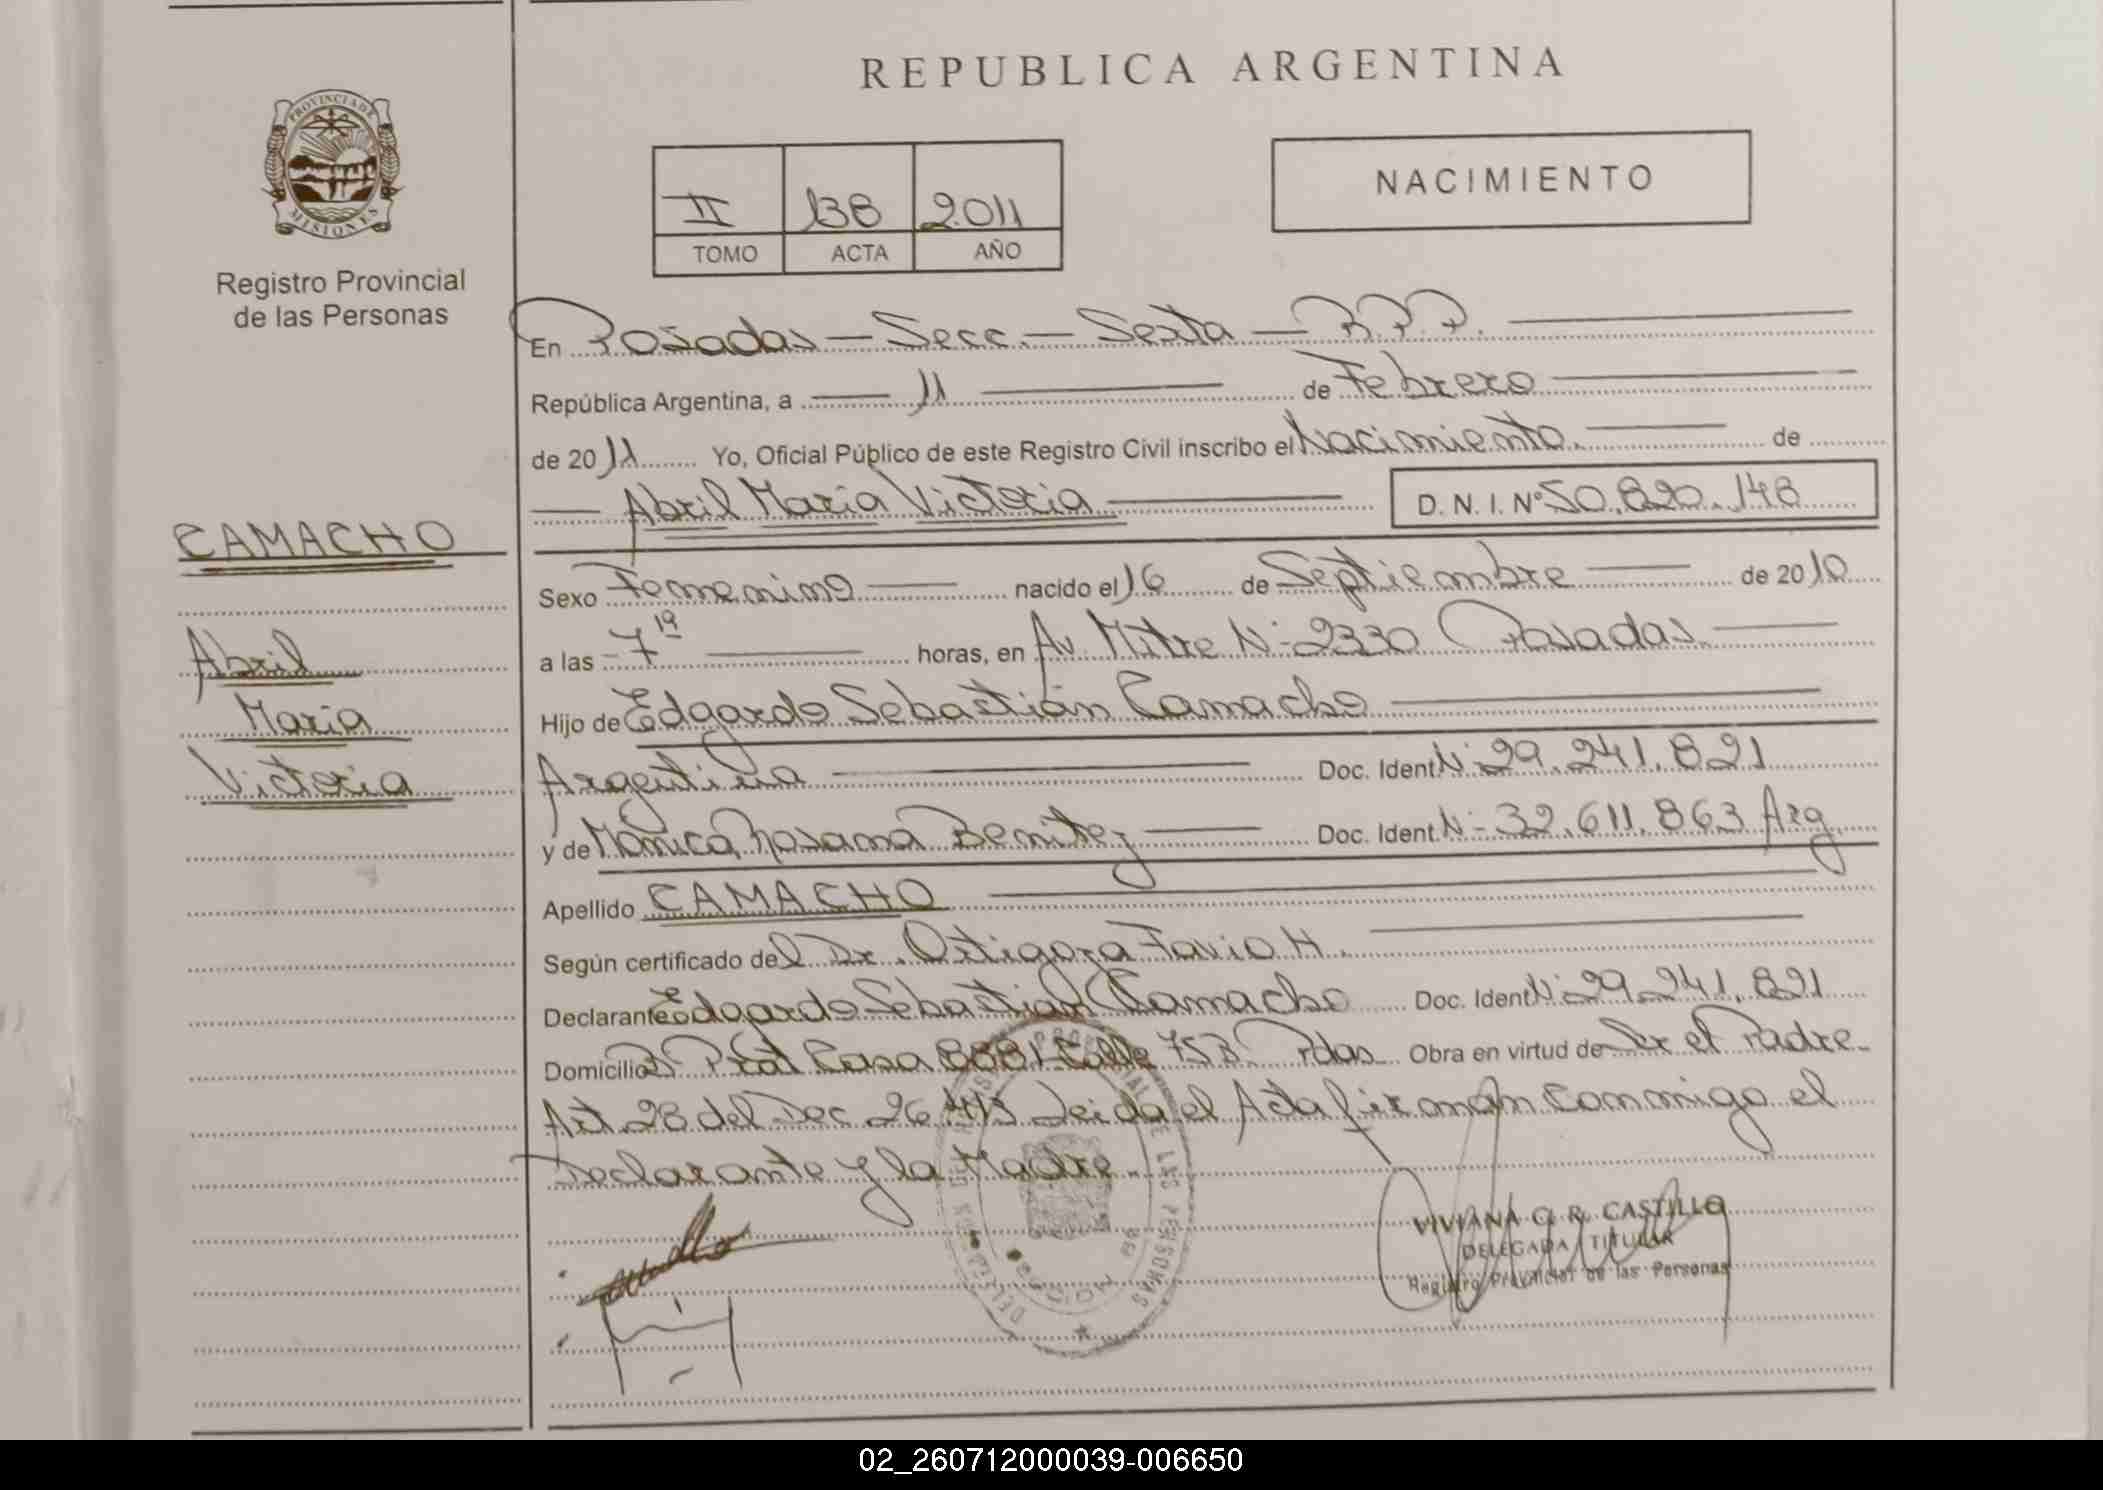 REPUBLICA ARGENTINA
PROVINCIA DE
MISIONES
Registro Provincial
de las Personas
II 138 2011
TOMO ACTA AÑO
NACIMIENTO
En Posadas — Secc. — Sexta — R.P.P.
República Argentina, a 11 de Febrero
de 2011 Yo, Oficial Público de este Registro Civil inscribo el Nacimiento. de
Abril Maria Victoria D. N. I. Nº 50.820.148
CAMACHO
Abril
Maria
Victoria
Sexo Femenino nacido el 16 de Septiembre de 2010
a las 7 19 horas, en Av. Mitre Nº 2330 Posadas
Hijo de Edgardo Sebastián Camacho
Argentina Doc. Ident. Nº 29.241.821
y de Mónica Rosana Benitez Doc. Ident. Nº 32.611.863 Arg
Apellido CAMACHO
Según certificado del Dr. Ortigoza Favio H.
Declarante Edgardo Sebastián Camacho Doc. Ident. Nº 29.241.821
Domicilio Casa 8881 Calle 75B Pdas Obra en virtud de Ser el Padre
Art. 28 del Dec 26.413 Leida el Acta firman conmigo el
Declarante y la Madre.
VIVIANA G. R. CASTILLO
DELEGADA TITULAR
Registro Provincial de las Personas
02_260712000039-006650